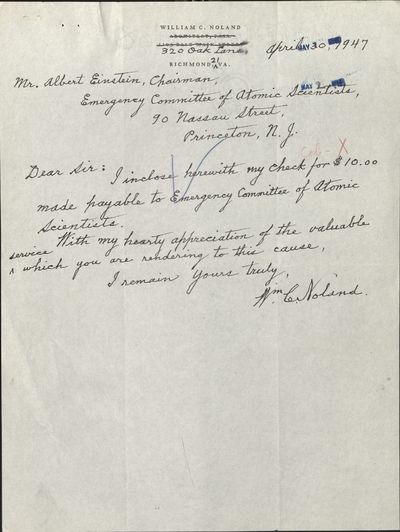 WILLIAM C. NOLAND
ARCHITECT, F.A.I.A.
320 Oak Lane,
RICHMOND 21 VA.
April 30, 1947
MAY
Mr. Albert Einstein, Chairman,
MAY 2
Emergency Committee of Atomic Scientists,
90 Nassau Street,
Princeton, N. J.
X
Dear Sir:
I inclose herewith my check for $10.00
made payable to Emergency Committee of Atomic
Scientists.
With my hearty appreciation of the valuable
service
^ which you are rendering to this cause,
I remain yours truly,
Wm. C. Noland.